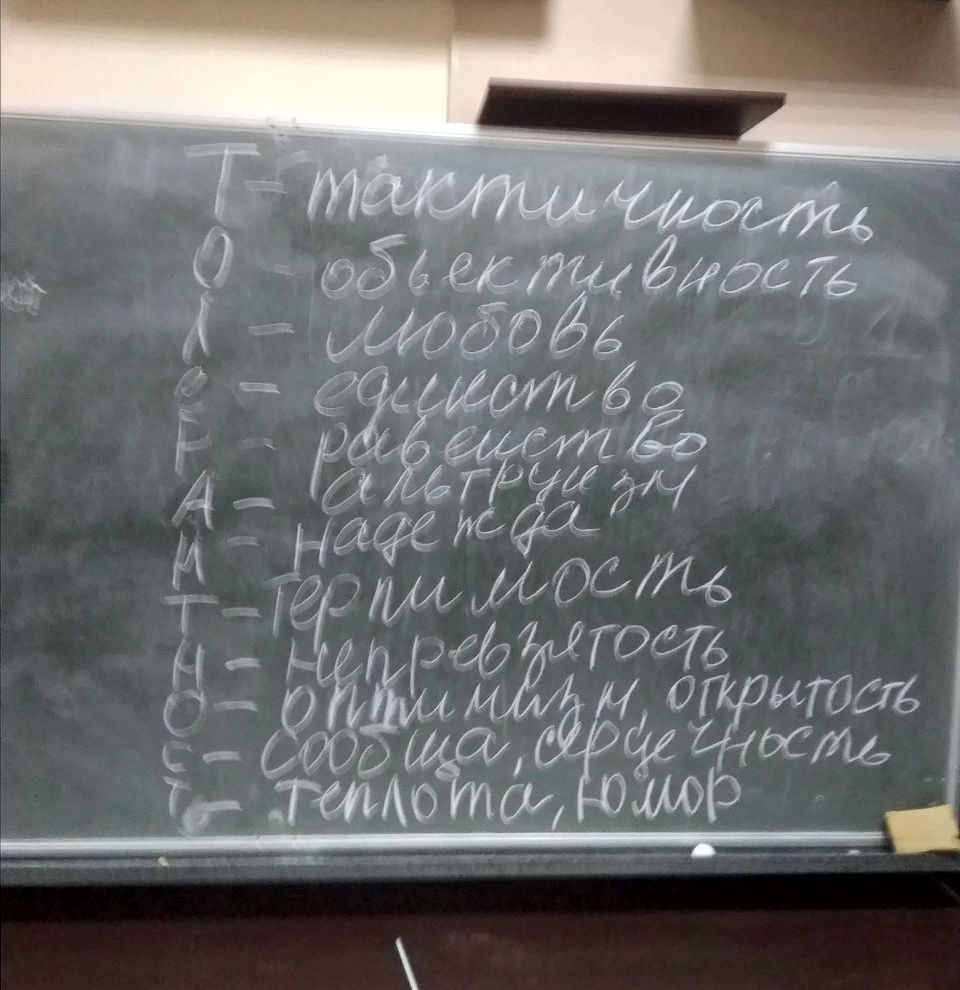 Т - тактичность
О - объективность
Л - любовь
е - единство
Р - равенство
А - альтруизм
Н - надежда
Т - терпимость
Н - непревзятость
О - оптимизм, открытость
с - сообща, сердечность
ть - теплота, юмор